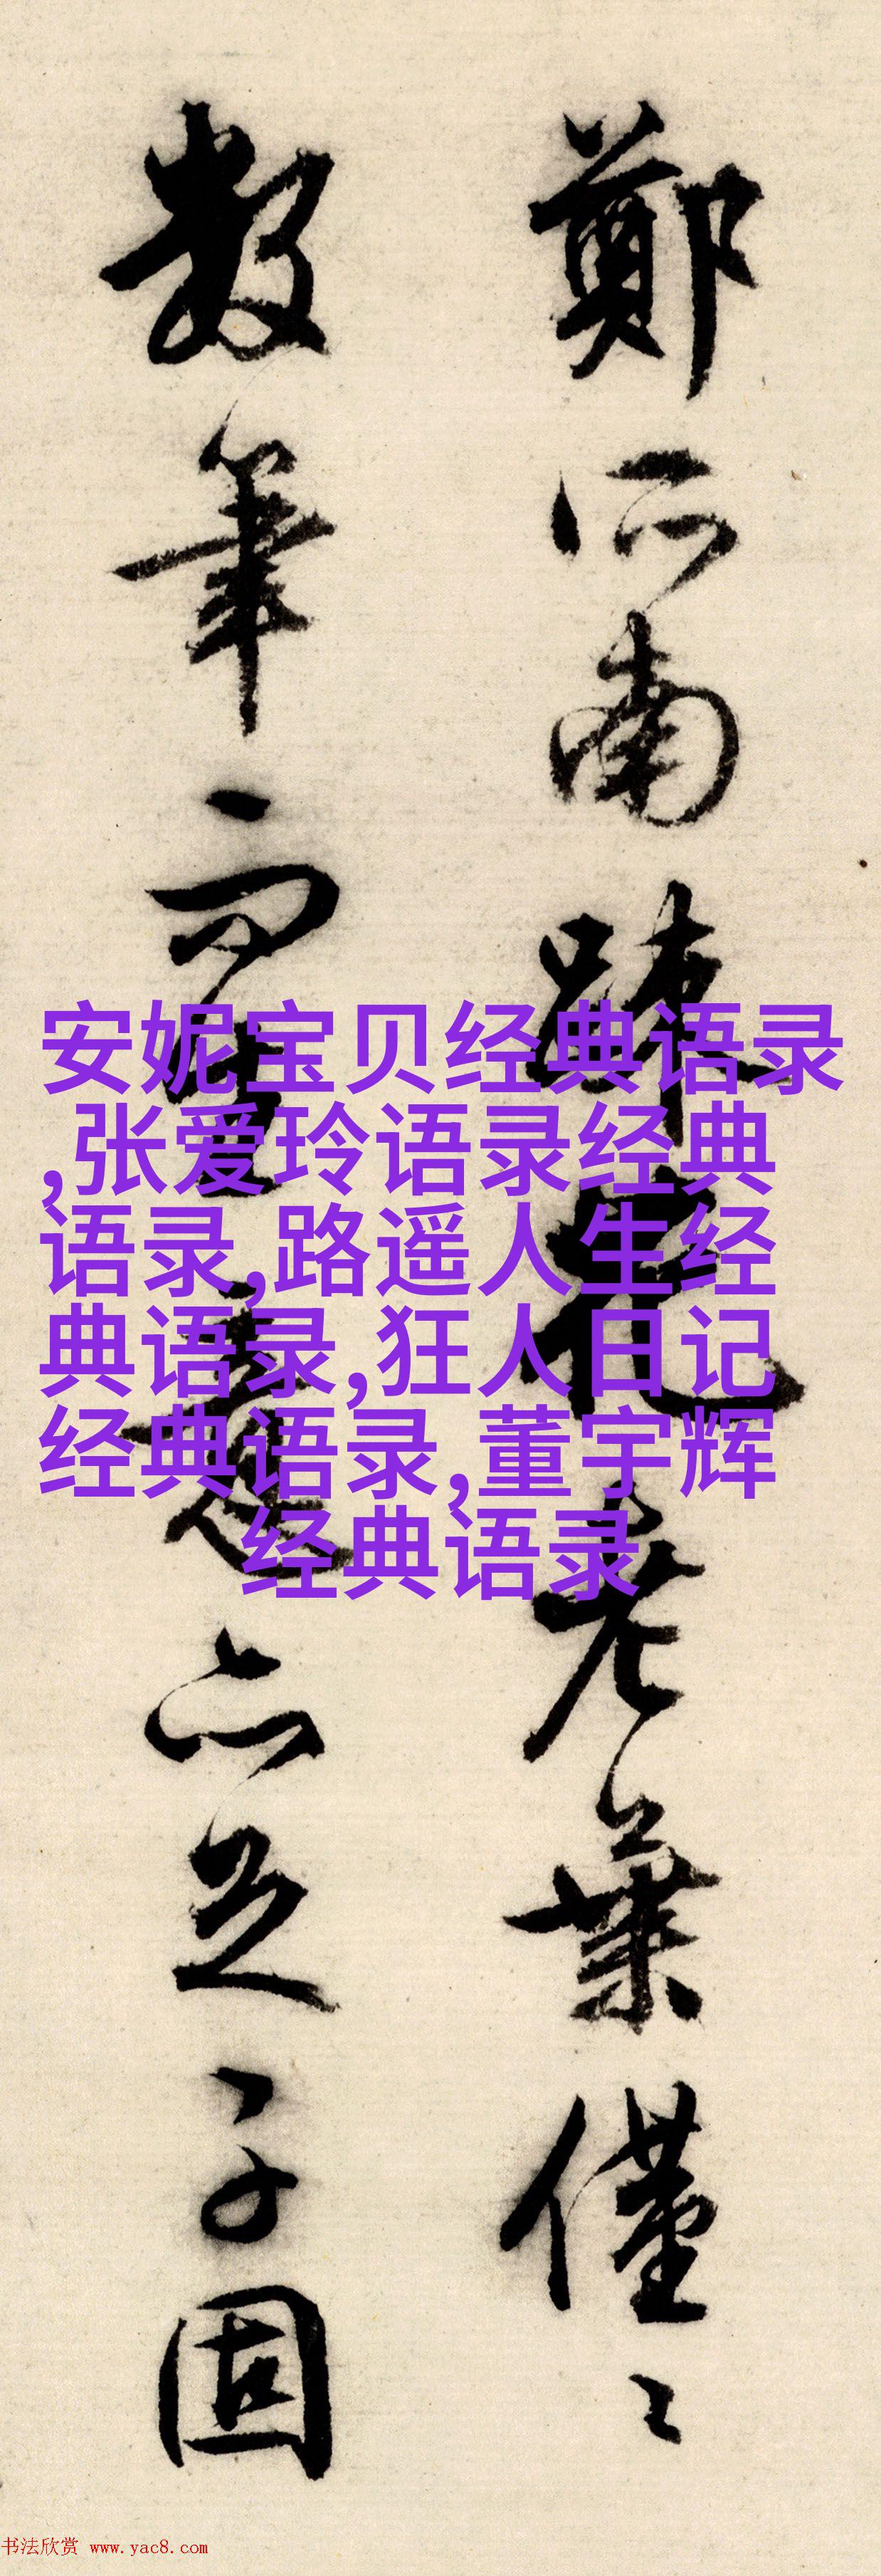 鄭所南疎花老葉僅〻
數筆而生意亦足子固
安妮宝贝经典语录
,张爱玲语录经典
语录,路遥人生经
典语录,狂人日记
经典语录,董宇辉
经典语录
书法欣赏 www.yac8.com